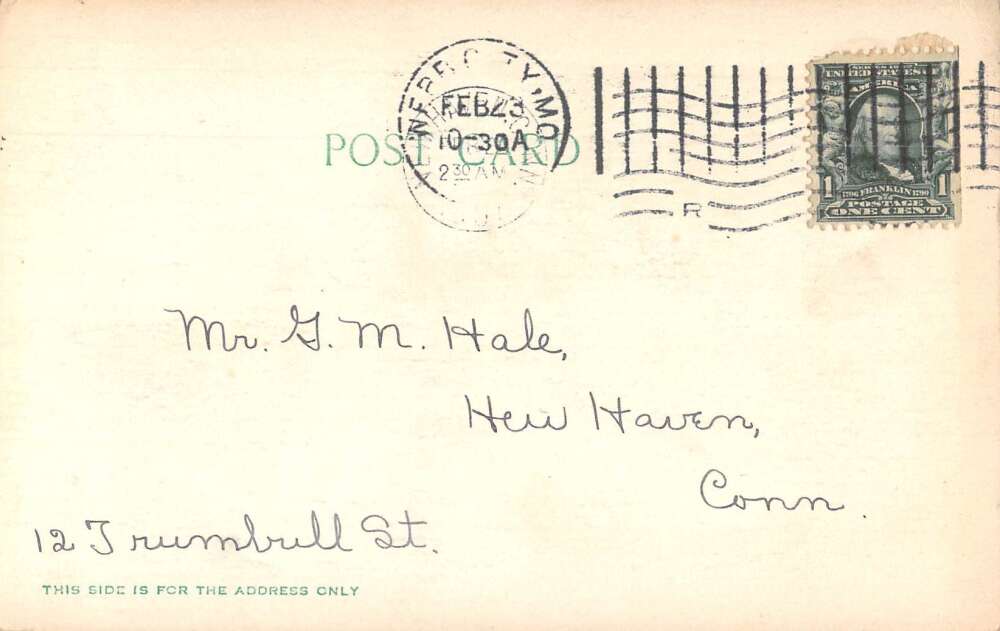 WEBB CITY, MO.
FEB 23
10-30A
2 30 AM
POST CARD
R
SERIES 1902
UNITED STATES OF
AMERICA
1 1706 FRANKLIN 1790 1
POSTAGE
ONE CENT
Mr. G. M. Hale,
New Haven,
Conn.
12 Trumbull St.
THIS SIDE IS FOR THE ADDRESS ONLY